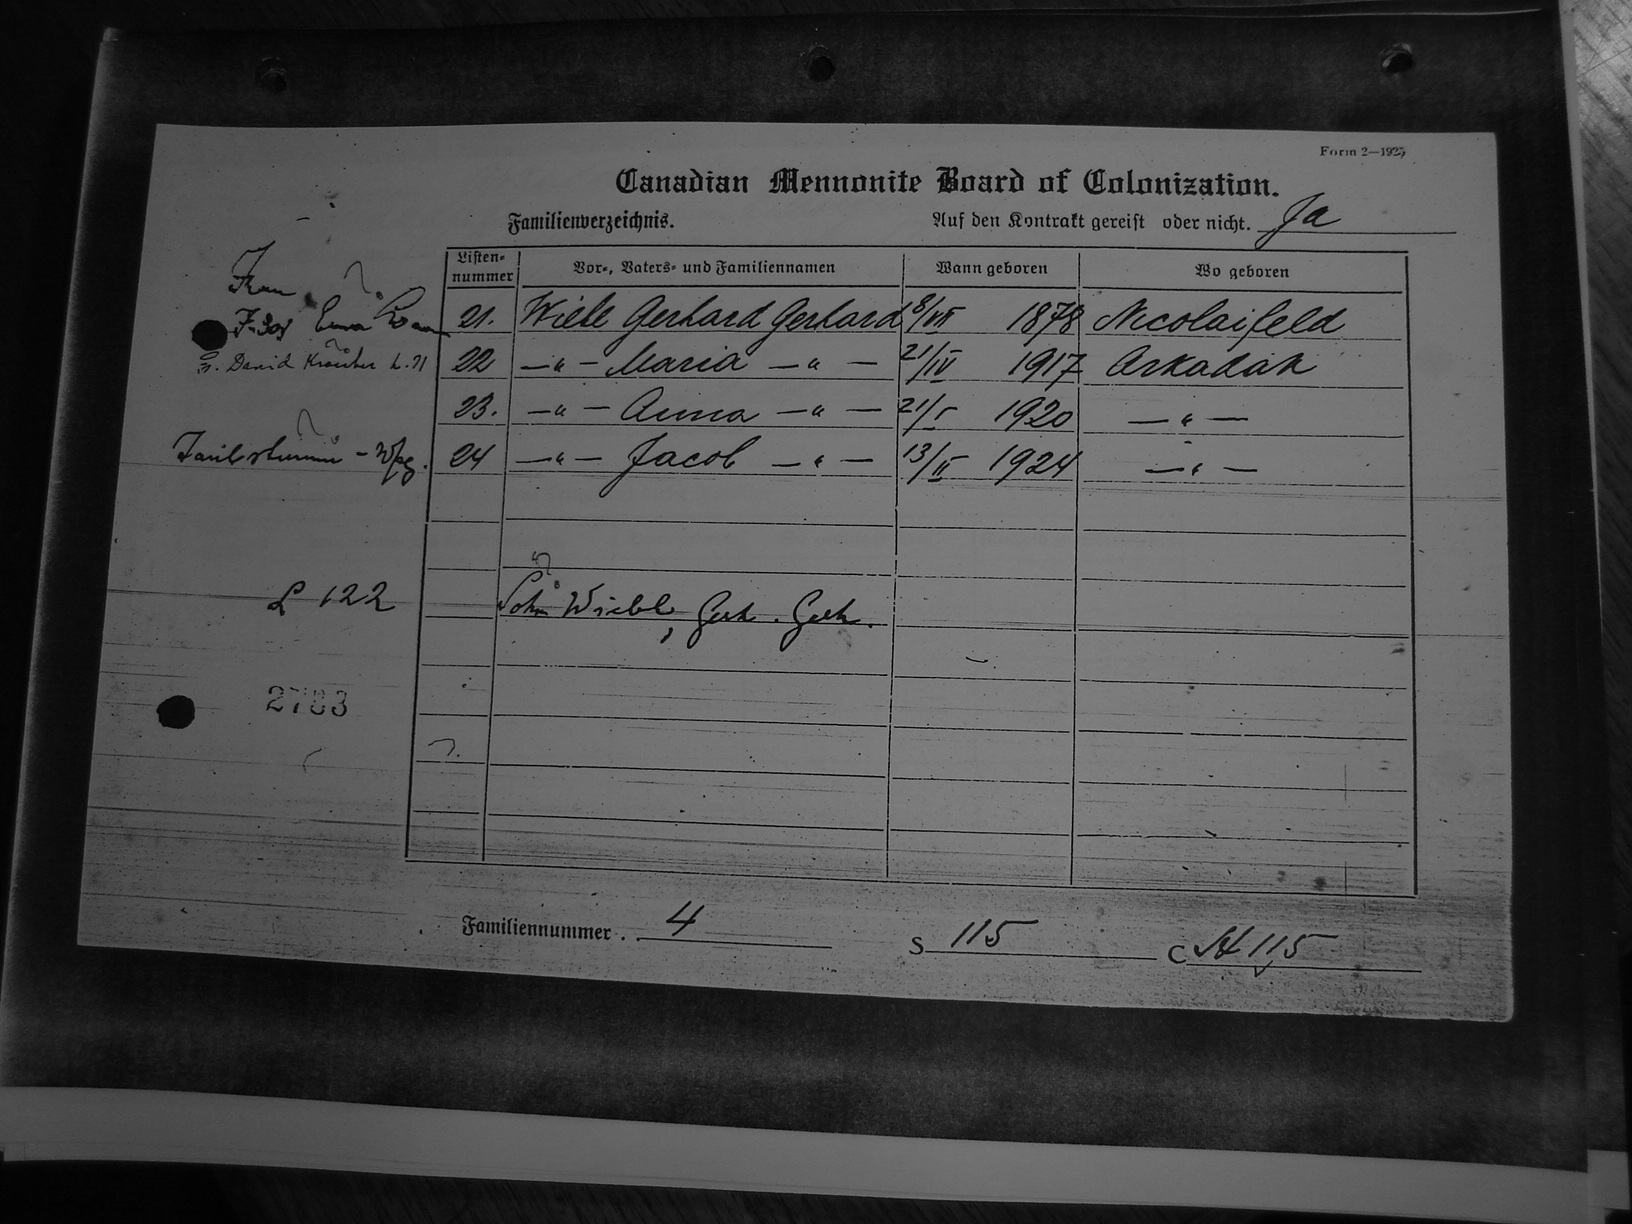 Form 2—1925
Canadian Mennonite Board of Colonization.
Familienverzeichnis. Auf den Kontrakt gereist oder nicht. Ja
Listen-nummer Vor-, Vaters- und Familiennamen Wann geboren Wo geboren
Frau
21. Wiebe Gerhard Gerhard 8/VII 1878 Nicolaifeld
G. David 22 —"— Maria —"— 21/IV 1917 Arkadak
23. —"— Anna —"— 21/I 1920 —"—
Wpg. 24 —"— Jacob —"— 13/II 1924 —"—
L 122 Sohn Wiebe, Gerh. Gerh.
2783
Familiennummer. 4 S 115 C 115